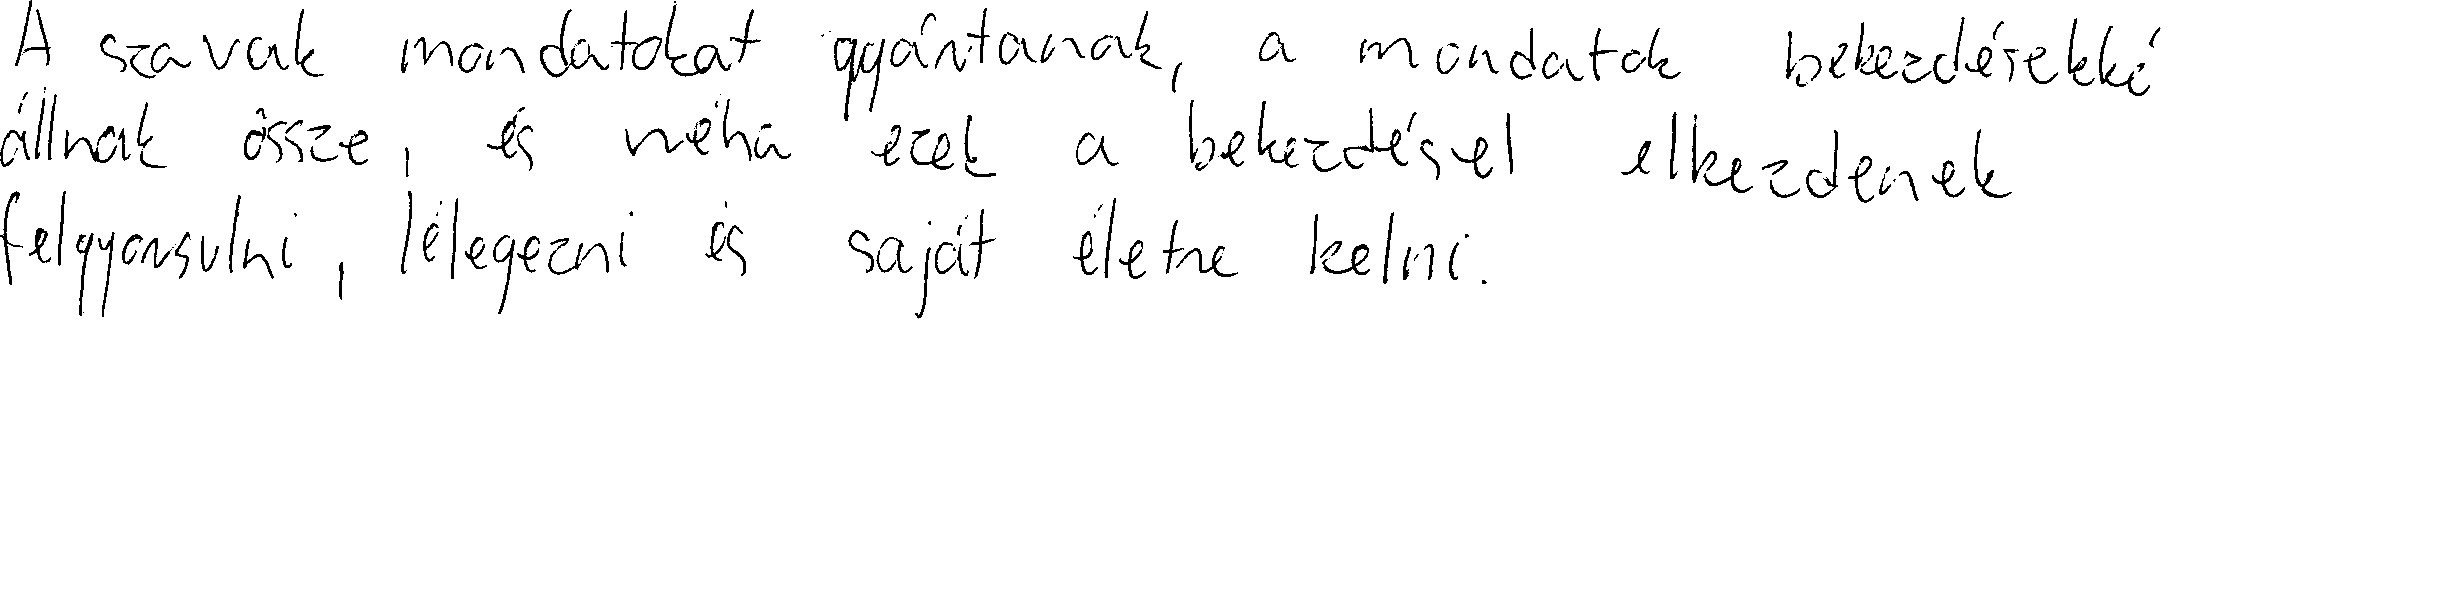 A szavak mondatokat gyártanak, a mondatok bekezdésekké
állnak össze, és néha ezek a bekezdésel elkezdenek
felgyorsulni, lélegezni és saját életre kelni.